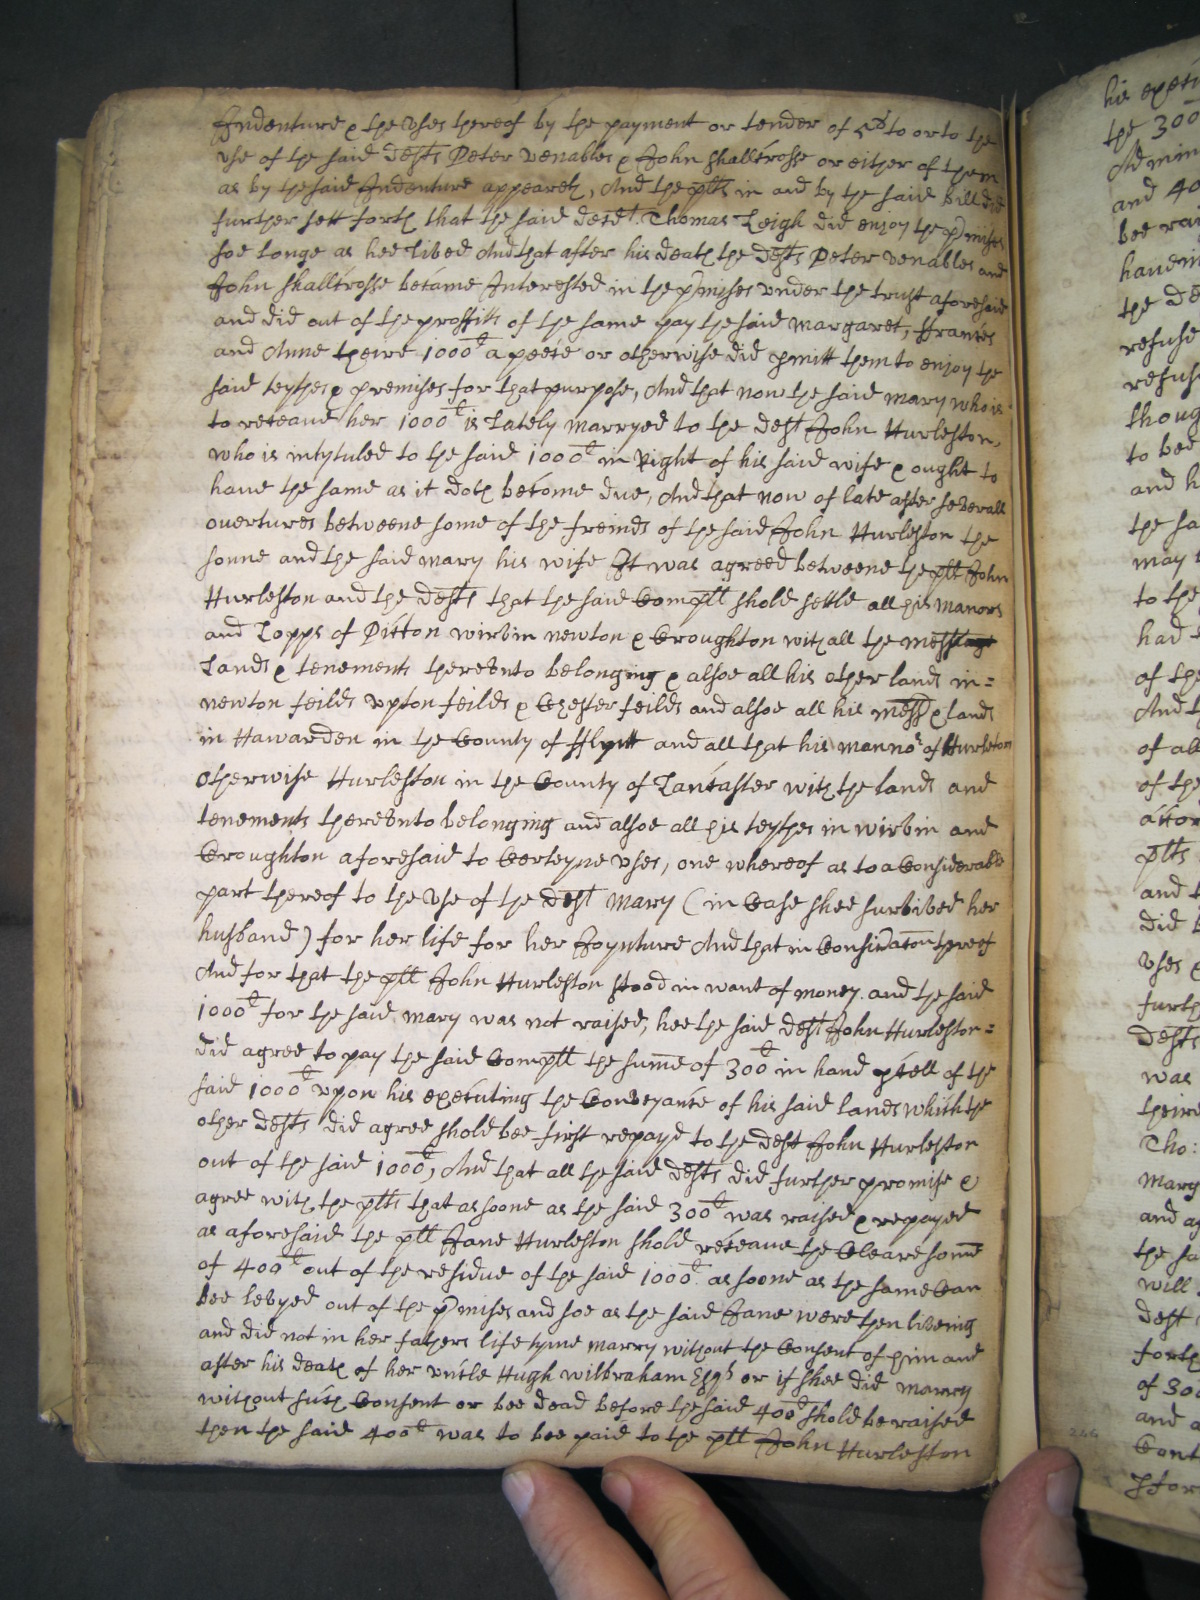 Indenture & the Uses thereof by the payment or tender of 5s to or to the
use of the said defts Peter Venables & John Shallcrosse or either of them
as by the said Indenture appeareth, And the plts in and by the said Bill did
further sett forth that the said defdt Thomas Leigh did enjoy the pmises
soe longe as hee lived And that after his death the defts Peter Venables and
John Shallcrosse became Interested in the pmises under the trust aforesaid
and did out of the proffitts of the same pay the said Margaret, ffrances
and Anne theire 1000l a peece or otherwise did pmitt them to enjoy the
said teythes & premises for that purpose, And that now the said Mary who is
to receaue her 1000l is Lately marryed to the deft John Hurleston,
who is intytuled to the said 1000l in Right of his said wife & ought to
haue the same as it doth become due, And that now of late after severall
ouertures betweene some of the freinds of the said John Hurleston the
sonne and the said Mary his wife It was agreed betweene the plt John
Hurleston and the defts that the said Complt shold settle all his Manors
and Lopps of Picton wirvin newton & Croughton with all the mess
Lands & tenements therevnto belonging & alsoe all his other lands in=
newton feilds vpton feilds & Chester feilds and alsoe all his mess & Lands
in Hawarden in the County of fflynt and all that his mannor of Hurleton
otherwise Hurleston in the County of Lancaster with the lands and
tenements therevnto belonging and alsoe all his teythes in wirvin and
Croughton aforesaid to Certeyne vses, one whereof as to a Considerable
part thereof to the Vse of the deft Mary (in Case shee survived her
husband) for her life for her Joynture And that in Considracon thereof
And for that the plt John Hurleston stood in want of money and the said
1000l for the said Mary was not raised, hee the said deft John Hurleston=
did agree to pay the said Complt the sume of 300l in hand pcell of the
said 1000l vpon his executing the Conveyance of his said lands which the
other defts did agree shold bee first repayd to the deft John Hurleston
out of the said 1000l, And that all the said defts did further promise &
agree with the plts that as soone as the said 300l was raised & repayed
as aforesaid the plt Jane Hurleston shold receaue the Cleare some
of 400l out of the residue of the said 1000l as soone as the same Can
bee levyed out of the pmises and soe as the said Jane were then liveing
and did not in her fathers life tyme marry without the Consent of him and
after his death of her vncle Hugh wilbraham Esqr or if shee did marry
without such Consent or bee dead before the said 400l shold be raised
then the said 400l was to bee paid to the plt John Hurleston
his exec
the 300
Admin
and 40
bee rai
hand
the de
refuse
refus
thoug
to bee
and h
the sa
may
to the
had
of the
And
of al
of the
attor
plts
and
did
Vses
furth
defts
was
theire
Tho:
Mary
and ag
the sa
will
deft
forth
of 300
and a
Cont
ffor